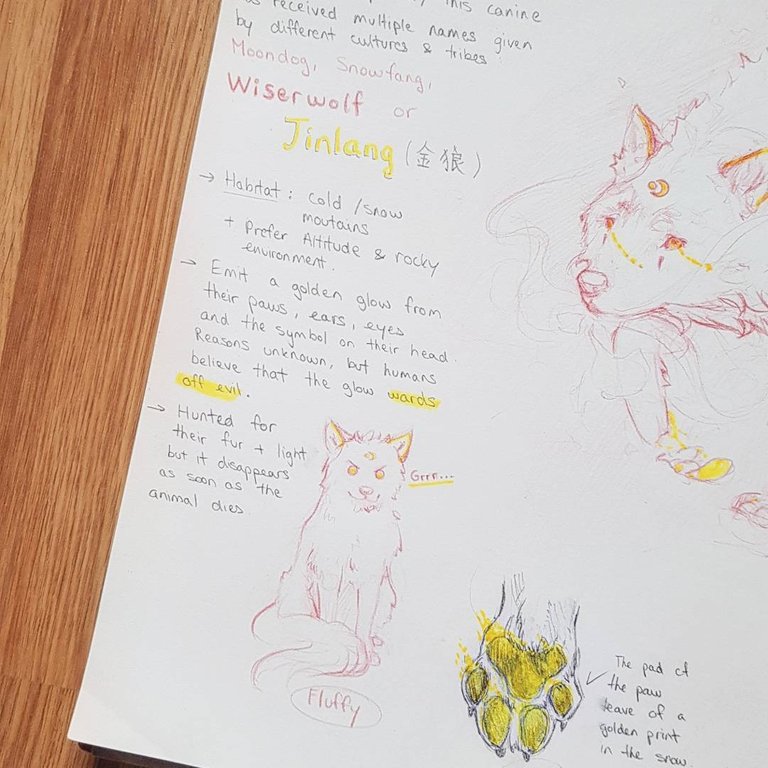 this canine
received multiple names given
by different cultures & tribes
Moondog, Snowfang,
Wiserwolf or
Jinlang (金狼)
→ Habitat : cold /snow
moutains
+ Prefer Altitude & rocky
environment.
→ Emit a golden glow from
their paws, ears, eyes
and the symbol on their head.
Reasons unknown, but humans
believe that the glow wards
off evil.
→ Hunted for
their fur + light
but it disappears
as soon as the
animal dies.
Grrr...
Fluffy
The pad of
the paw
leave of a
golden print
in the snow.